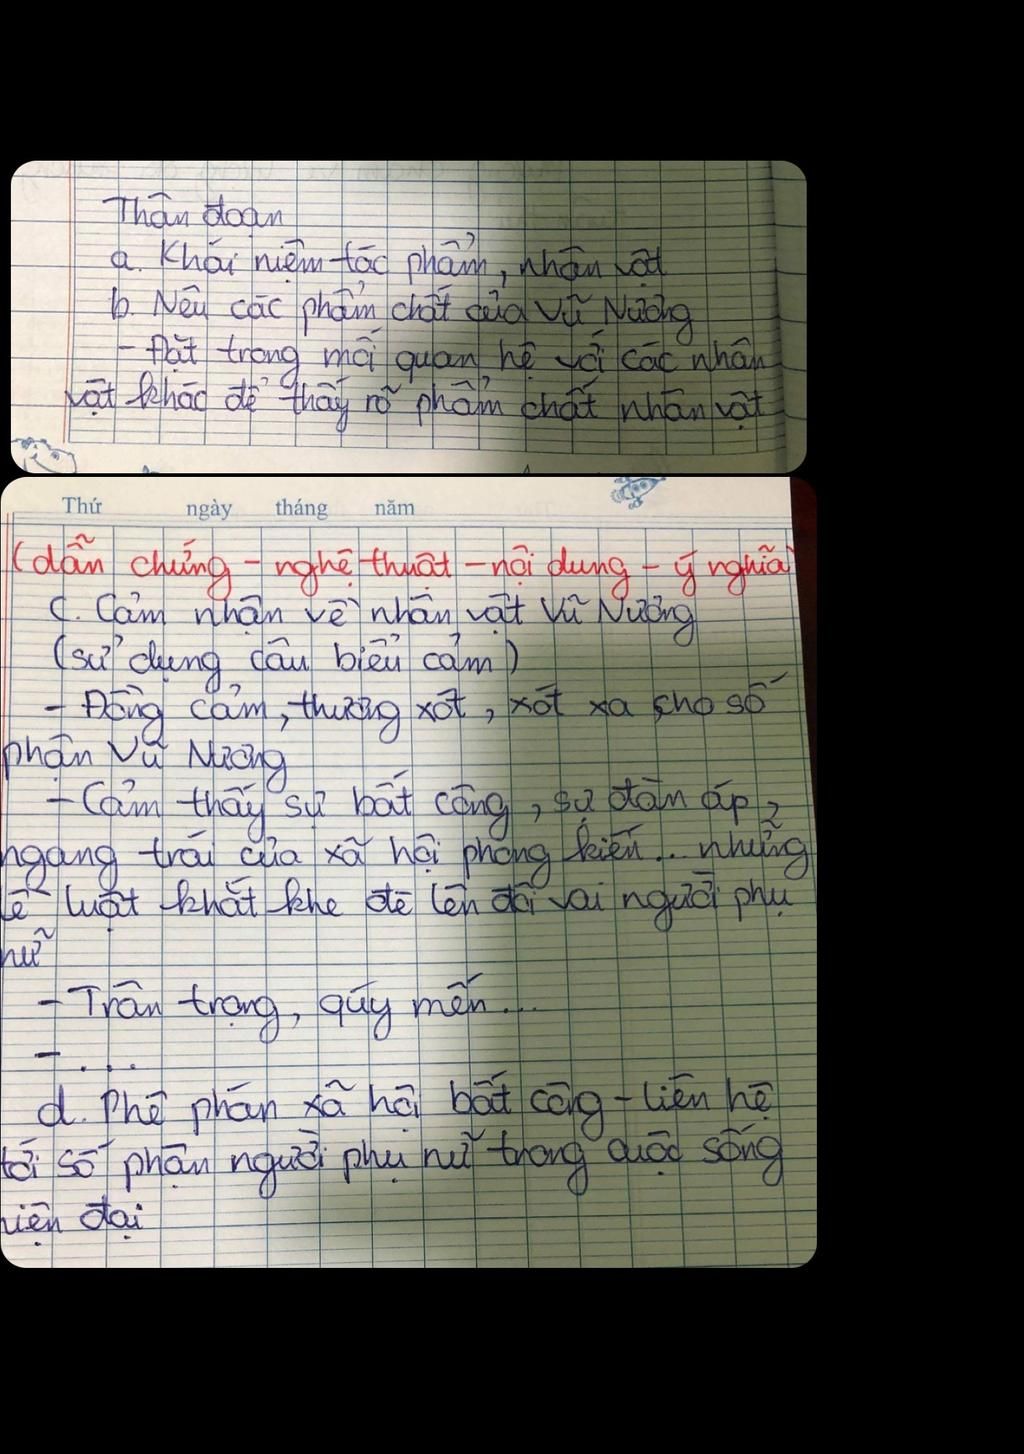 Thân đoạn
a. Khái niệm tác phẩm, nhân vật
b. Nêu các phẩm chất của Vũ Nương
- Đặt trong mối quan hệ với các nhân
vật khác để thấy rõ phẩm chất nhân vật
Thứ ngày tháng năm
(dẫn chứng - nghệ thuật - nội dung - ý nghĩa)
c. Cảm nhận về nhân vật Vũ Nương
(sử dụng câu biểu cảm)
- Đồng cảm, thương xót, xót xa cho số
phận Vũ Nương
- Cảm thấy sự bất công, sự đàn áp,
ngang trái của xã hội phong kiến... những
lễ luật khắt khe đè lên đôi vai người phụ
nữ
- Trân trọng, qúy mến...
- ....
d. Phê phán xã hội bất công - liên hệ
tới số phận người phụ nữ trong cuộc sống
hiện đại